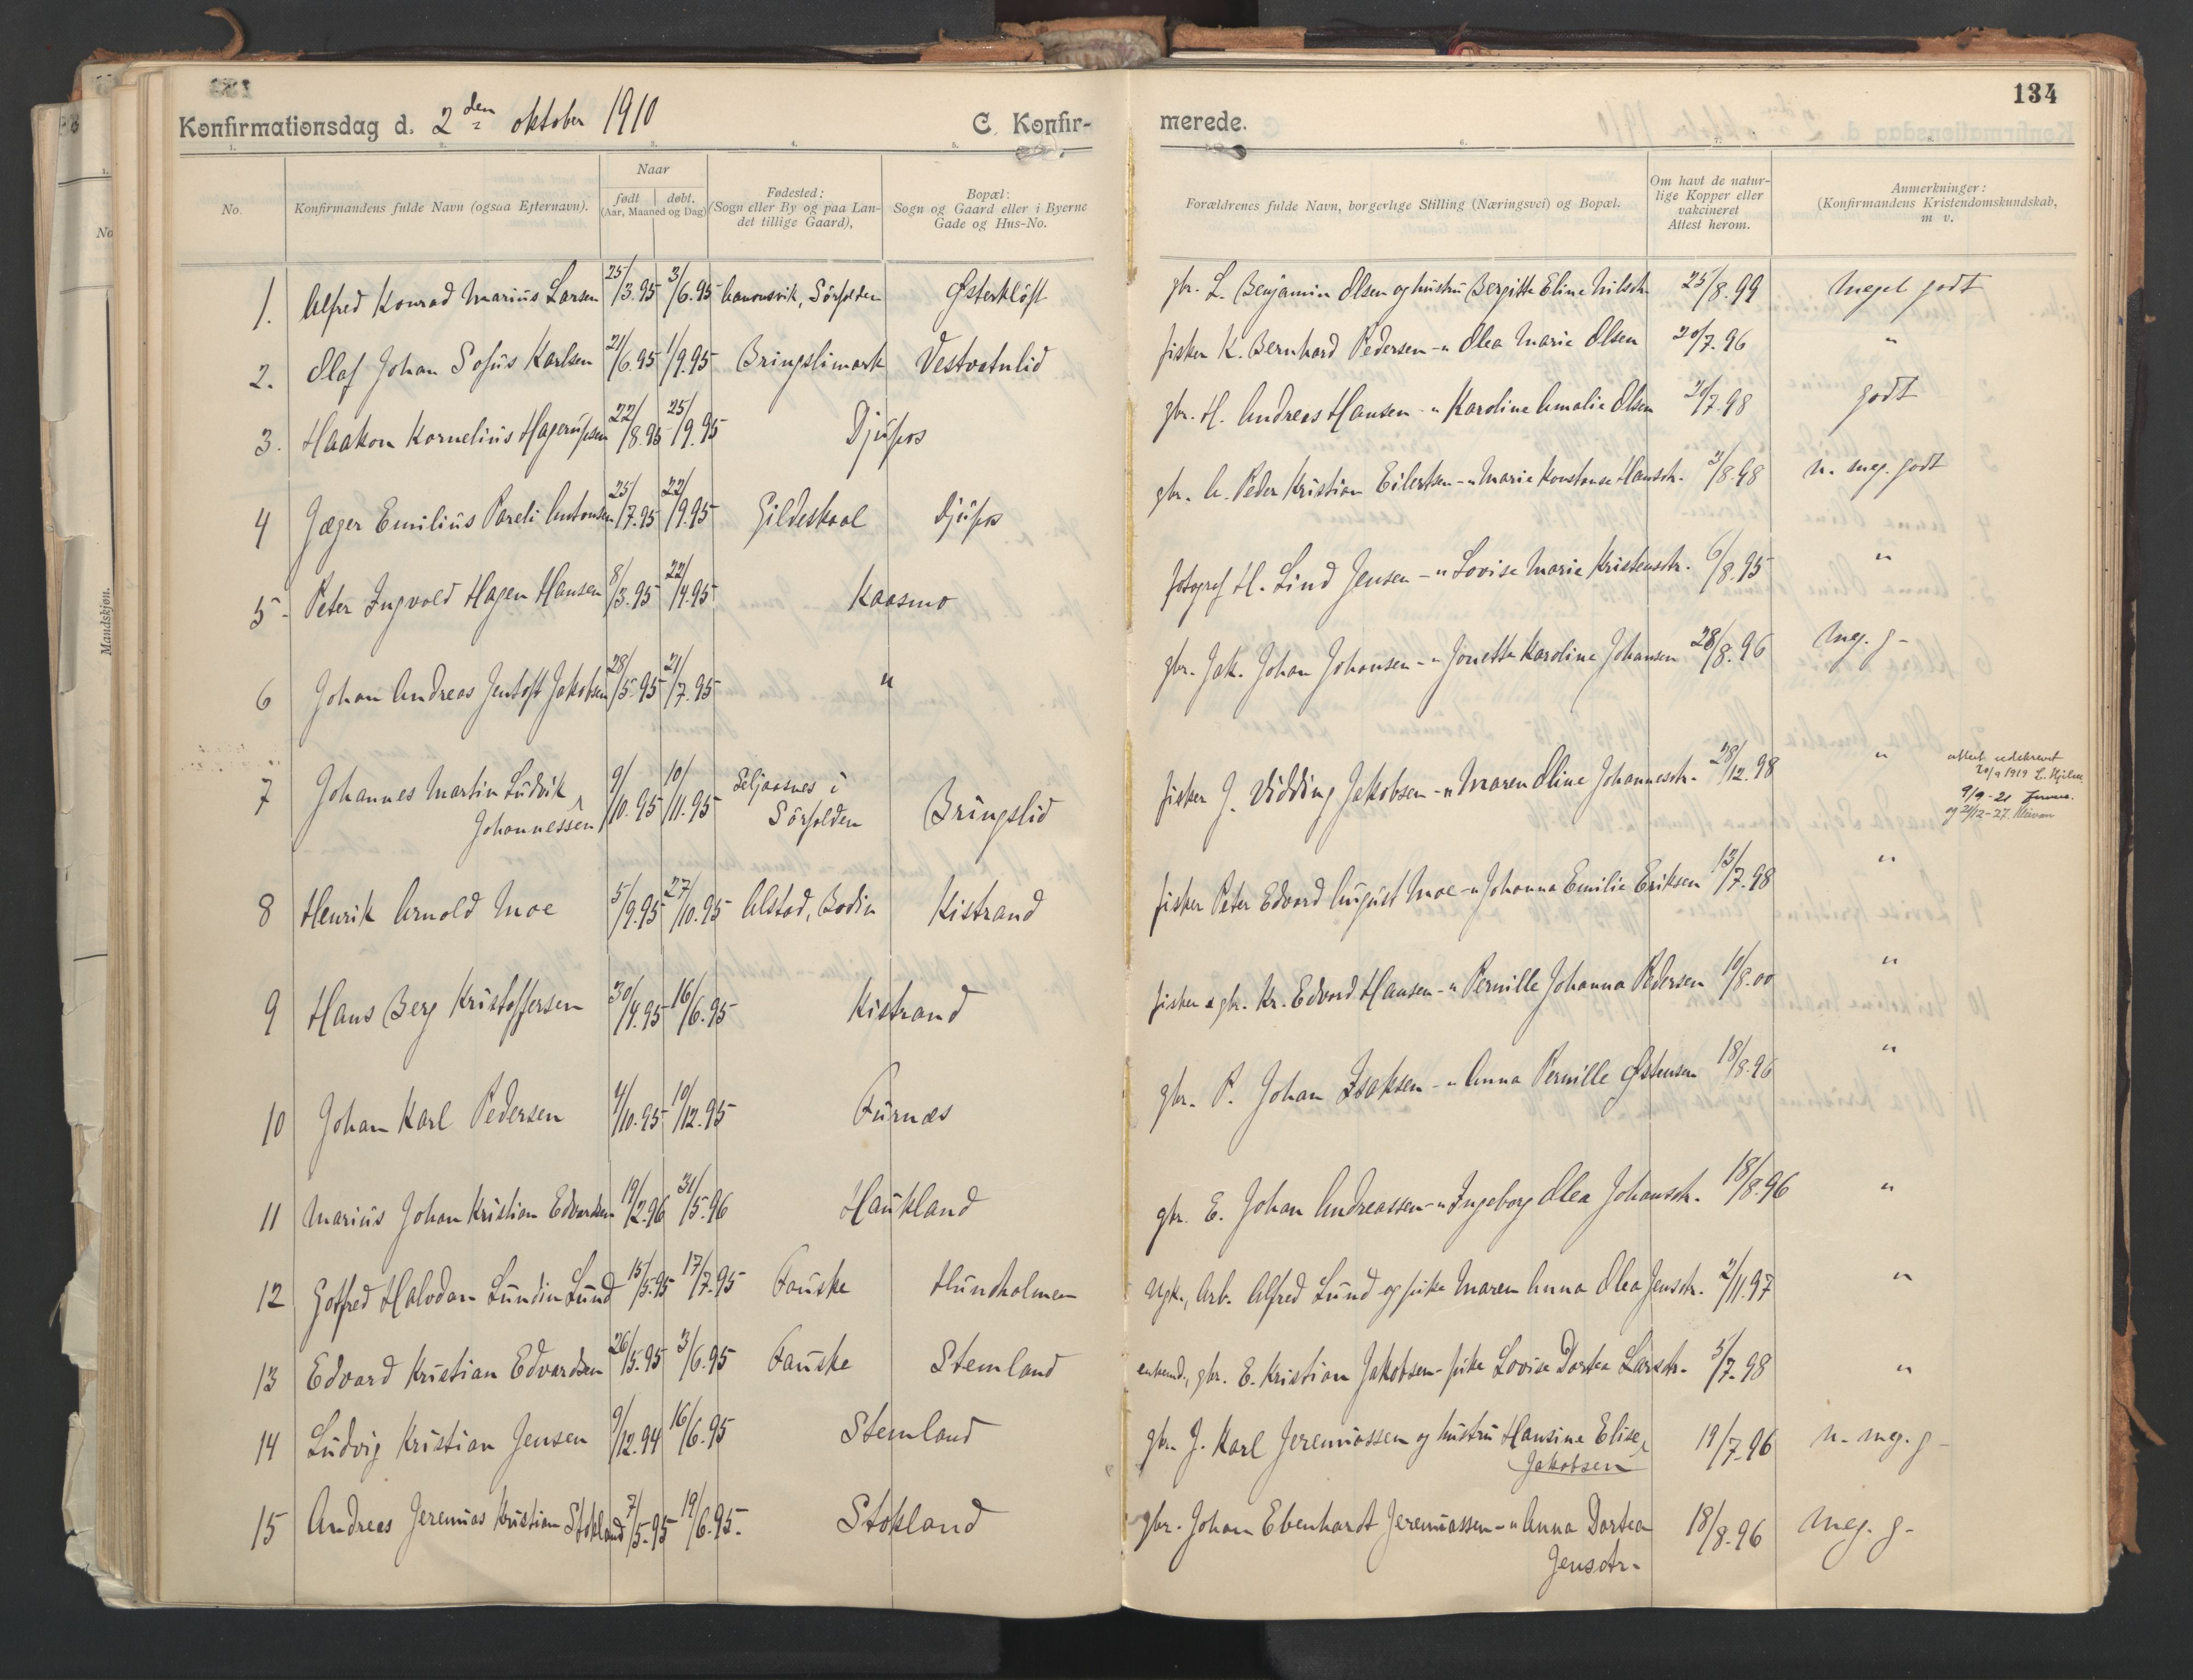 134
Konfirmationsdag d. 2den oktober 1910
C. Konfirmerede.
Mandskjøn.
No.
Konfirmandens fulde Navn (ogsaa Efternavn).
Naar
født | døbt.
(Aar, Maaned og Dag)
Fødested:
(Sogn eller By og paa Landet tillige Gaard),
Bopæl:
Sogn og Gaard eller i Byerne
Gade og Hus-No.
Forældrenes fulde Navn, borgerlige Stilling (Næringsvei) og Bopæl.
Om havt de naturlige Kopper eller
vakcineret
Attest herom.
Anmerkninger:
(Konfirmandens Kristendomskundskab,
m v.
1. Alfred Konrad Marius Larsen 25/3.95 3/6.95 Sörfolden Østerkløft gbr. L. Benjamin Olsen og hustru Bergitte Eline Nilsdtr. 25/8.99 Meget godt
2. Olaf Johan Sofus Karlsen 21/6.95 1/9.95 Bringslimark Vestvatnlid fisker K. Bernhard Pedersen - " Olea Marie Olsen 20/7.96 "
3. Haakon Kornelius Hagerupsen 22/8.95 25/9.95 Djupos gbr. H. Andreas Hansen - " Karoline Amalie Olsen 20/7.98 godt
4 Jæger Emilius Pareli Antonsen 25/7.95 22/9.95 Gildeskaal Djupos gbr. A. Peder Kristian Eilertsen - " Marie Konstanse Hansdtr. 2/8.98 n. meg. godt
5 - Peter Ingvald Hagen Hansen 8/3.95 22/4.95 Kaasmo fotograf H. Lind Jensen - " Lovise Marie Kristensdtr. 6/8.95 "
6 Johan Andreas Jentoft Jakobsen 28/5.95 21/7.95 " gbr. Jak. Johan Johansen - " Jonette Karoline Johansen 28/8.96 Meg. g -
7 Johannes Martin Ludvik
Johannessen 9/10.95 10/11.95 Seljaasnes i
Sörfolden Bringslid fisker J. Vidding Jakobsen - " Maren Oline Johannesdtr. 28/12.98 "
attest
20/9 1919
9/9-21
og 21/12-27.
8 Henrik Arnold Moe 5/9.95 27/10.95 Alstad, Bodin Kistrand fisker Peter Edvard August Moe - " Johanna Emilie Eriksen 13/7.98 "
9 Hans Berg Kristoffersen 30/4.95 16/6.95 Kistrand fisker & gbr. Kr. Edvard Hansen - " Pernille Johanna Pedersen 10/8.00 "
10 Johan Karl Pedersen 4/10.95 10/12.95 Furnæs gbr. P. Johan Isaksen - " Anna Pernille Østensen 18/8.96 "
11 Marius Johan Kristian Edvardsen 19/2.96 31/5.96 Haukland gbr. E. Johan Andreassen - " Ingeborg Olea Johansdtr. 18/8.96 "
12 Gotfred Halvdan Lundin Lund 15/5.95 17/7.95 Fauske Hundholmen Ugk., Arb. Alfred Lund og pike Maren Anna Olea Jensdtr. 2/11.97 "
13 Edvard Kristian Edvardsen 26/5.95 3/6.95 Fauske Stemland enkemd., gbr. E. Kristian Jakobsen - pike Lovise Dortea Larsdtr. 5/7.98 "
14 Ludvig Kristian Jensen 9/12.94 16/6.95 Stemland gbr. J. Karl Jeremiassen og hustru Hansine Elise
Jakobsen 19/7.96 n. meg. g -
15 Andreas Jeremias Kristian Stokland 7/5.95 19/6.95. Stokland gbr. Johan Ebenhardt Jeremiassen - " Anna Dortea
Jensdtr. 18/8.96 Meg. g -